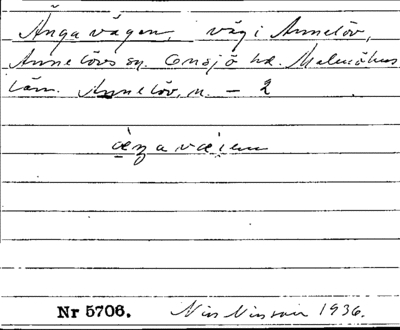 Ängavägen, väg i Annelöv,
Annelövs sn. Onsjö hd. Malmöhus
län. Annelöv, n. — 2
Nr 5706. Nils Nilsson 1936.